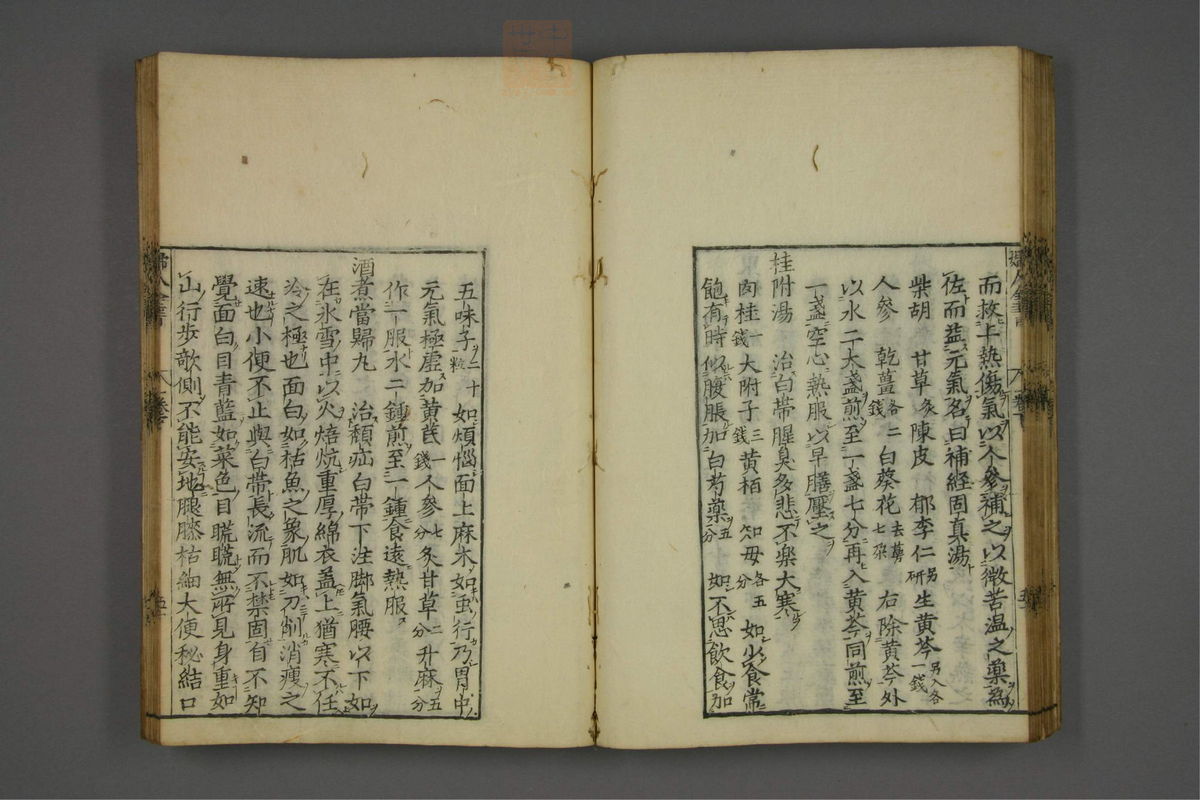 而救上熱傷氣以人參補之以微苦温之藥為
佐而益元氣名曰補経固真湯
柴胡 甘草炙 陳皮 郁李仁另研 生黄芩一錢另入各
人參 乾薑各二錢 白葵花去萼七朶 右除黄芩外
以水二大盞煎至一盞七分再入黄芩同煎至
一盞空心熱服以早膳壓之
桂附湯 治白帯腥臭多悲不楽大寒
肉桂一錢 大附子三錢 黄栢 知母各五分 如少食常
飽有時似腹脹加白芍藥五分 如不思飲食加
五味子二十粒 如煩惱面上麻木如虫行乃胃中
元氣極虚加黄芪一錢 人參七分 炙甘草二分 升麻五分
作一服水二鍾煎至一鍾食遠熱服
酒煮當歸丸 治㿗疝白帯下注脚氣腰以下如
在氷雪中以火焙炕重厚綿衣蓋上猶寒不任
冷之極也面白如枯魚之象肌如刀削消痩之
速也小便不止與白帯長流而不禁固自不知
覺面白目青藍如菜色目䀮䀮無所見身重如
山行歩欹側不能安地腿膝枯細大便秘結口